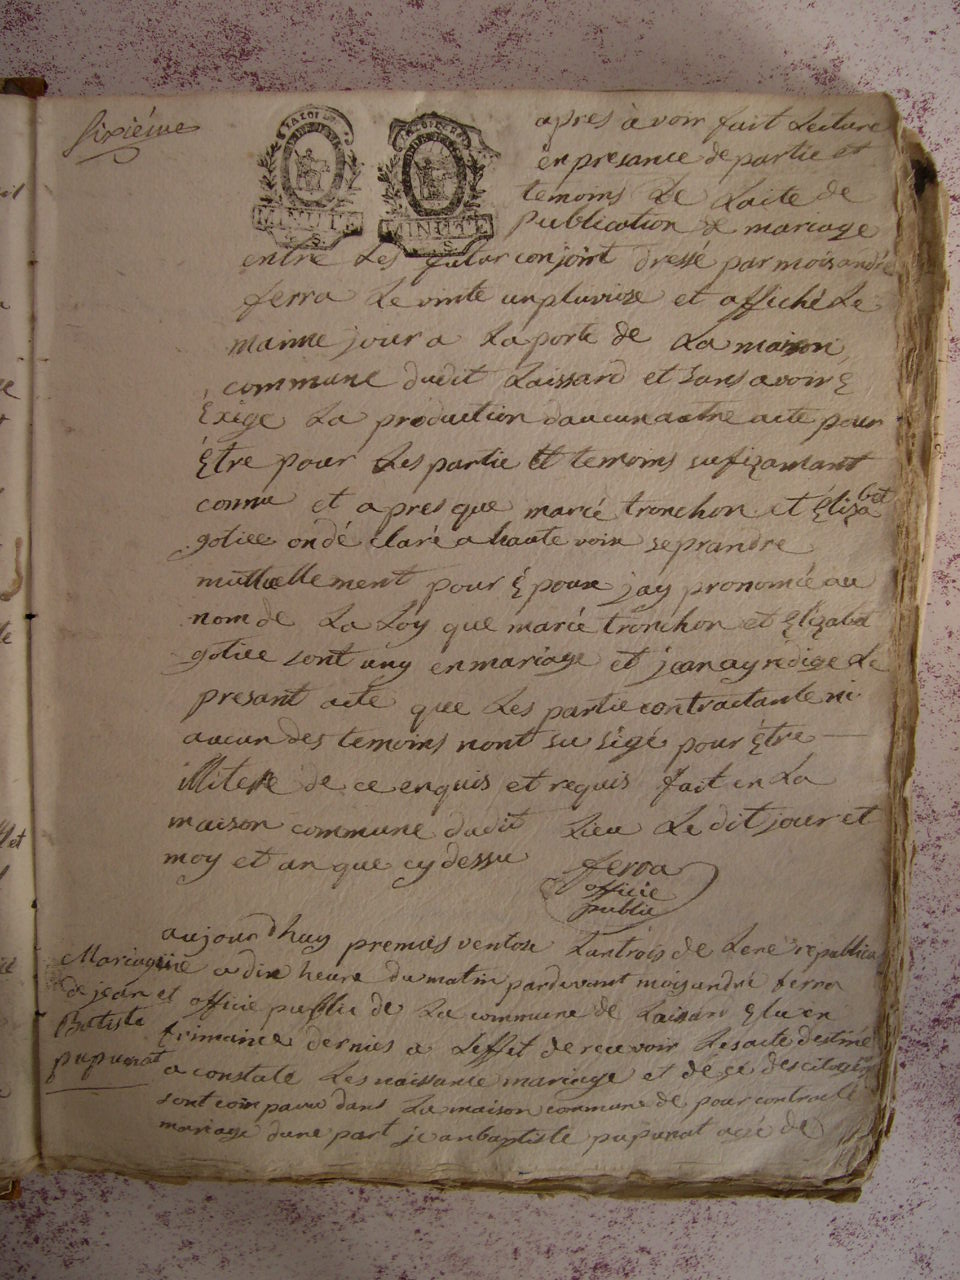 Sixiéme
MINUTE
MINUTE
apres àvoir fait Lecture
en presance de partie et
temoins De Laite de
Publication de mariage
entre Les futur conjoint dressé par mois andré
ferra Le vinte un pluviose et affiché Le
maime jour a La porte de La maison
commune dudit Laissard et sans avoire
Exige La production daucun autre acte pour
Être pour Les partie et temoins sufizamant
connu et apres que marié tronchon et Élizabet
gotiee on dé claré a haute voix se prandre
mutuellement pour Époux jay prononcé au
nom de La Loy que marié tronchon et Elizabet
gotiee sont uny en mariage et jean ay redige Le
presant acte que Les partie contractante ni
aucun des temoins nont su sigé pour Être
illitere de ce enquis et requis fait en La
maison commune dudit Lieu Le dit jour et
moy et an que cy dessu
ferra
officie
public
Mariage
de jean
Batiste
pupunat
aujourdhuy premies ventose Lantrois de Lere republica
ine a dix heure du matin pardevant mois andré ferra
et officie public de La commune de Laissard Elu en
frimaire dernies a Leffet de recevoir Les acte destiné
a constate Les naissance mariage et décé des citoyen
sont comparu dans La maison commune de pour contracté
mariage dune part jean baptiste pupunat agé de